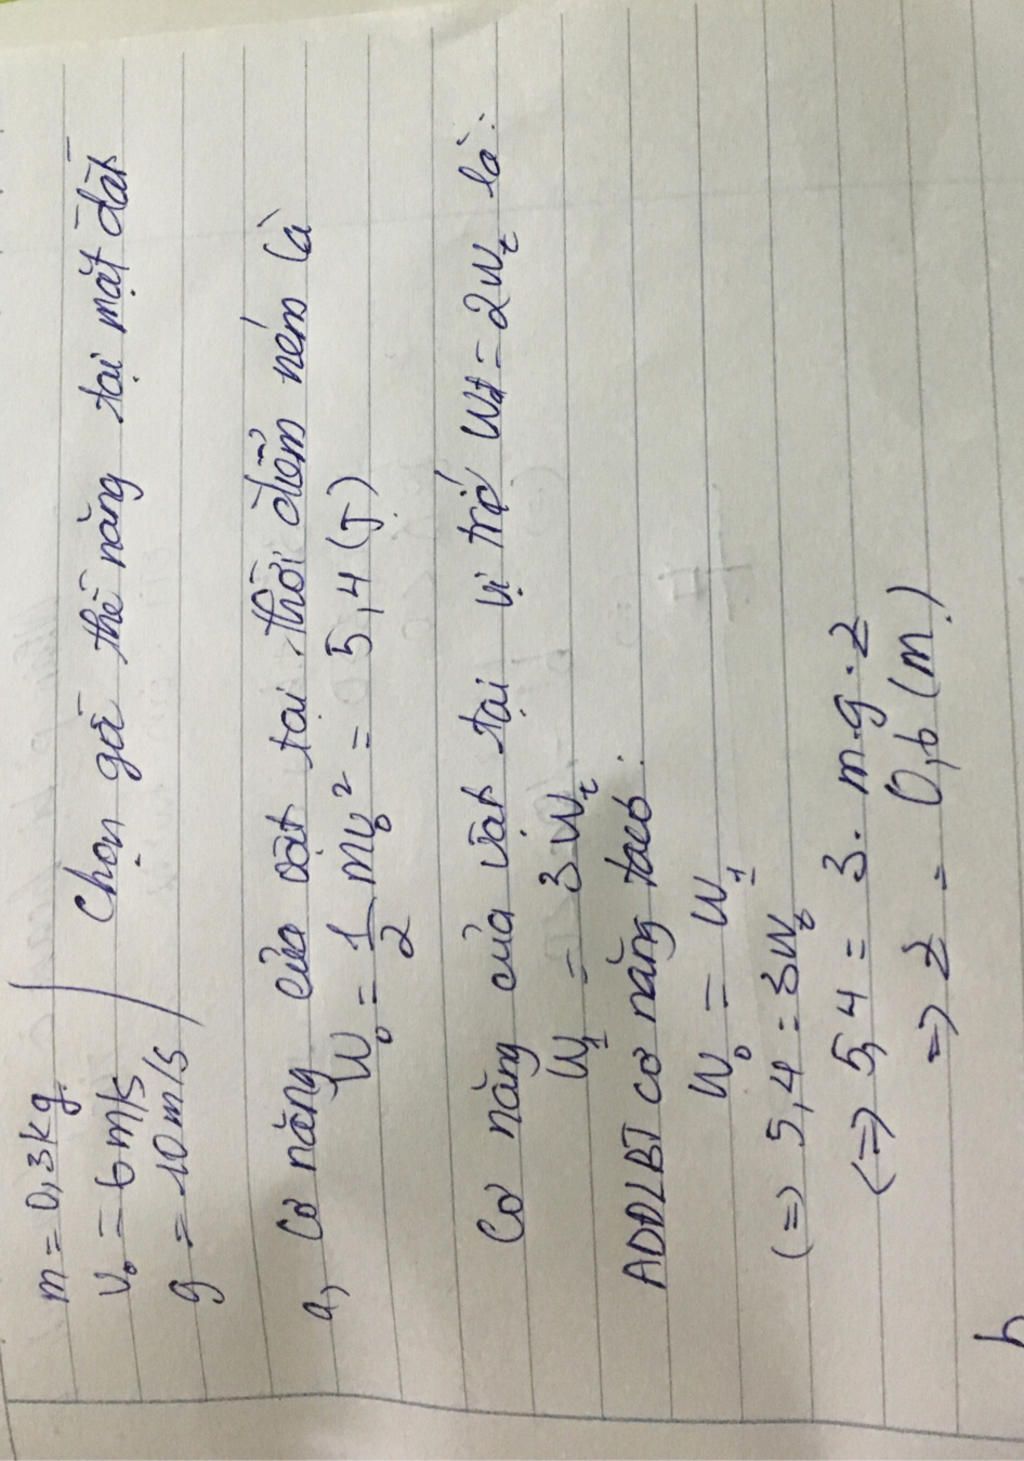 m = 0,3kg
v₀ = 6 m/s
g = 10m/s
Chọn gốc thế năng tại mặt đất
a, Cơ năng của vật tại thời điểm ném là
W₀ = 1/2 mv₀² = 5,4 (J)
Cơ năng của vật tại vị trí Wđ = 2Wt là:
W₁ = 3Wt
ADĐLBT cơ năng ta có:
W₀ = W₁
(=) 5,4 = 3Wt
(=) 5,4 = 3. m.g.z
=) z = 0,6 (m)
b